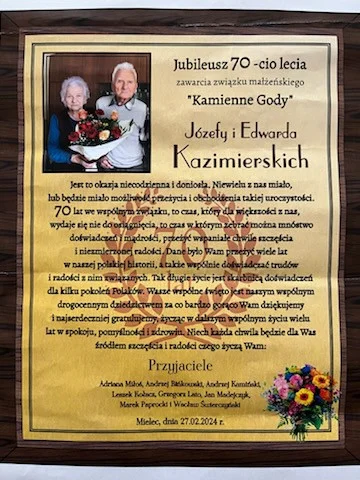 Jubileusz 70 -cio lecia
zawarcia związku małżeńskiego
"Kamienne Gody"
Józefy i Edwarda
Kazimierskich
Jest to okazja niecodzienna i doniosła. Niewielu z nas miało,
lub będzie miało możliwość przeżycia i obchodzenia takiej uroczystości.
70 lat we wspólnym związku, to czas, który dla większości z nas,
wydaje się nie do osiągnięcia, to czas w którym zebrać można mnóstwo
doświadczeń i mądrości, przeżyć wspaniałe chwile szczęścia
i niezmierzonej radości. Dane było Wam przeżyć wiele lat
w naszej polskiej historii, a także wspólnie doświadczać trudów
i radości z nim związanych. Tak długie życie jest skarbnicą doświadczeń
dla kilku pokoleń Polaków. Wasze wspólne święto jest naszym wspólnym
drogocennym dziedzictwem, za co bardzo gorąco Wam dziękujemy
i najserdeczniej gratulujemy, życząc w dalszym wspólnym życiu wielu
lat w spokoju, pomyślności i zdrowiu. Niech każda chwila będzie dla Was
źródłem szczęścia i radości czego życzą Wam:
Przyjaciele
Adriana Miłoś, Andrzej Bańkowski, Andrzej Kamiński,
Leszek Kołacz, Grzegorz Lato, Jan Madejczyk,
Marek Paprocki i Wacław Świerczyński
Mielec, dnia 27.02.2024 r.